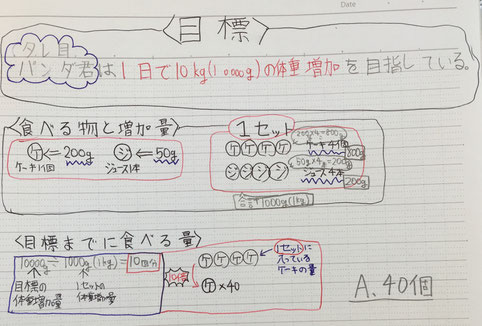 Date
〈目標〉
タレ目
パンダ君は1日で10kg(10000g)の体重増加を目指している。
〈食べる物と増加量〉
1セット
ケ⇐200g ジ⇐50g
ケーキ1個 ジュース1本
200g×4=800g
ケケケケ ケーキ4個
800g
50g×4=200g
ジジジジ ジュース4本
200g
合計1000g(1kg)
〈目標までに食べる量〉
10000g÷1000g(1kg)=10セット
目標の
体重増加の量
1セットの
体重増加の量
10倍
ケケケケ
ケ×40
1セットに
入っている
ケーキの量
A、40個